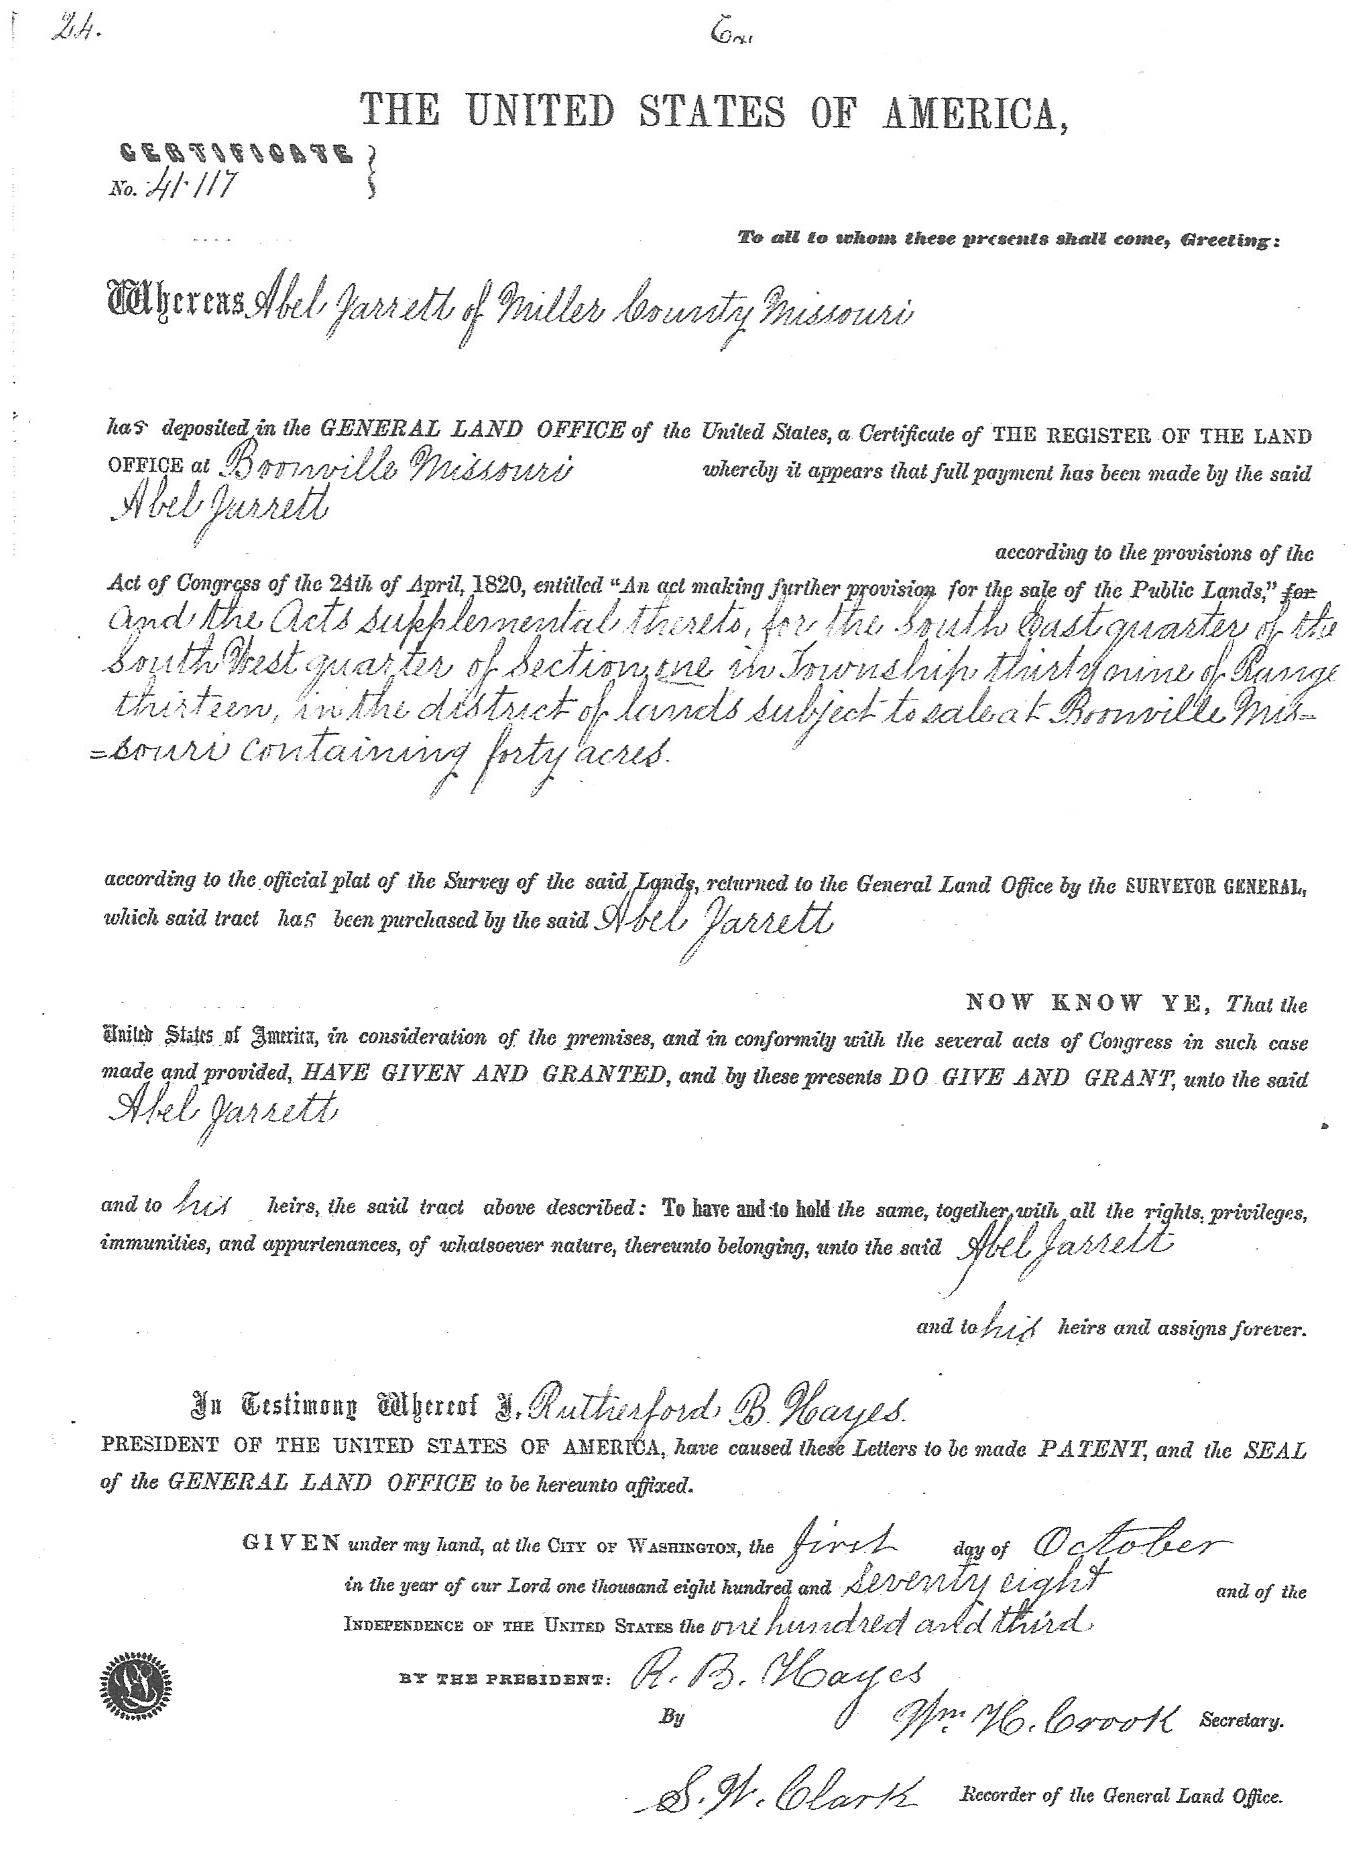 24.
THE UNITED STATES OF AMERICA,
CERTIFICATE
No. 41.117
To all to whom these presents shall come, Greeting:
Whereas Abel Jarrett of Miller County Missouri
has deposited in the GENERAL LAND OFFICE of the United States, a Certificate of THE REGISTER OF THE LAND
OFFICE at Boonville Missouri whereby it appears that full payment has been made by the said
Abel Jarrett
according to the provisions of the
Act of Congress of the 24th of April, 1820, entitled "An act making further provision for the sale of the Public Lands," for
and the Acts supplemental thereto, for the South East quarter of the
South West quarter of Section one in Township thirty nine of Range
thirteen, in the district of lands subject to sale at Boonville Mis=
=souri containing forty acres.
according to the official plat of the Survey of the said Lands, returned to the General Land Office by the SURVEYOR GENERAL,
which said tract has been purchased by the said Abel Jarrett
NOW KNOW YE, That the
United States of America, in consideration of the premises, and in conformity with the several acts of Congress in such case
made and provided, HAVE GIVEN AND GRANTED, and by these presents DO GIVE AND GRANT, unto the said
Abel Jarrett
and to his heirs, the said tract above described: To have and to hold the same, together with all the rights, privileges,
immunities, and appurtenances, of whatsoever nature, thereunto belonging, unto the said Abel Jarrett
and to his heirs and assigns forever.
In Testimony Whereof I, Rutherford B. Hayes.
PRESIDENT OF THE UNITED STATES OF AMERICA, have caused these Letters to be made PATENT, and the SEAL
of the GENERAL LAND OFFICE to be hereunto affixed.
GIVEN under my hand, at the CITY OF WASHINGTON, the first day of October
in the year of our Lord one thousand eight hundred and seventy eight and of the
INDEPENDENCE OF THE UNITED STATES the one hundred and third
BY THE PRESIDENT: R. B. Hayes
By Wm. H. Crook Secretary.
S. W. Clark Recorder of the General Land Office.